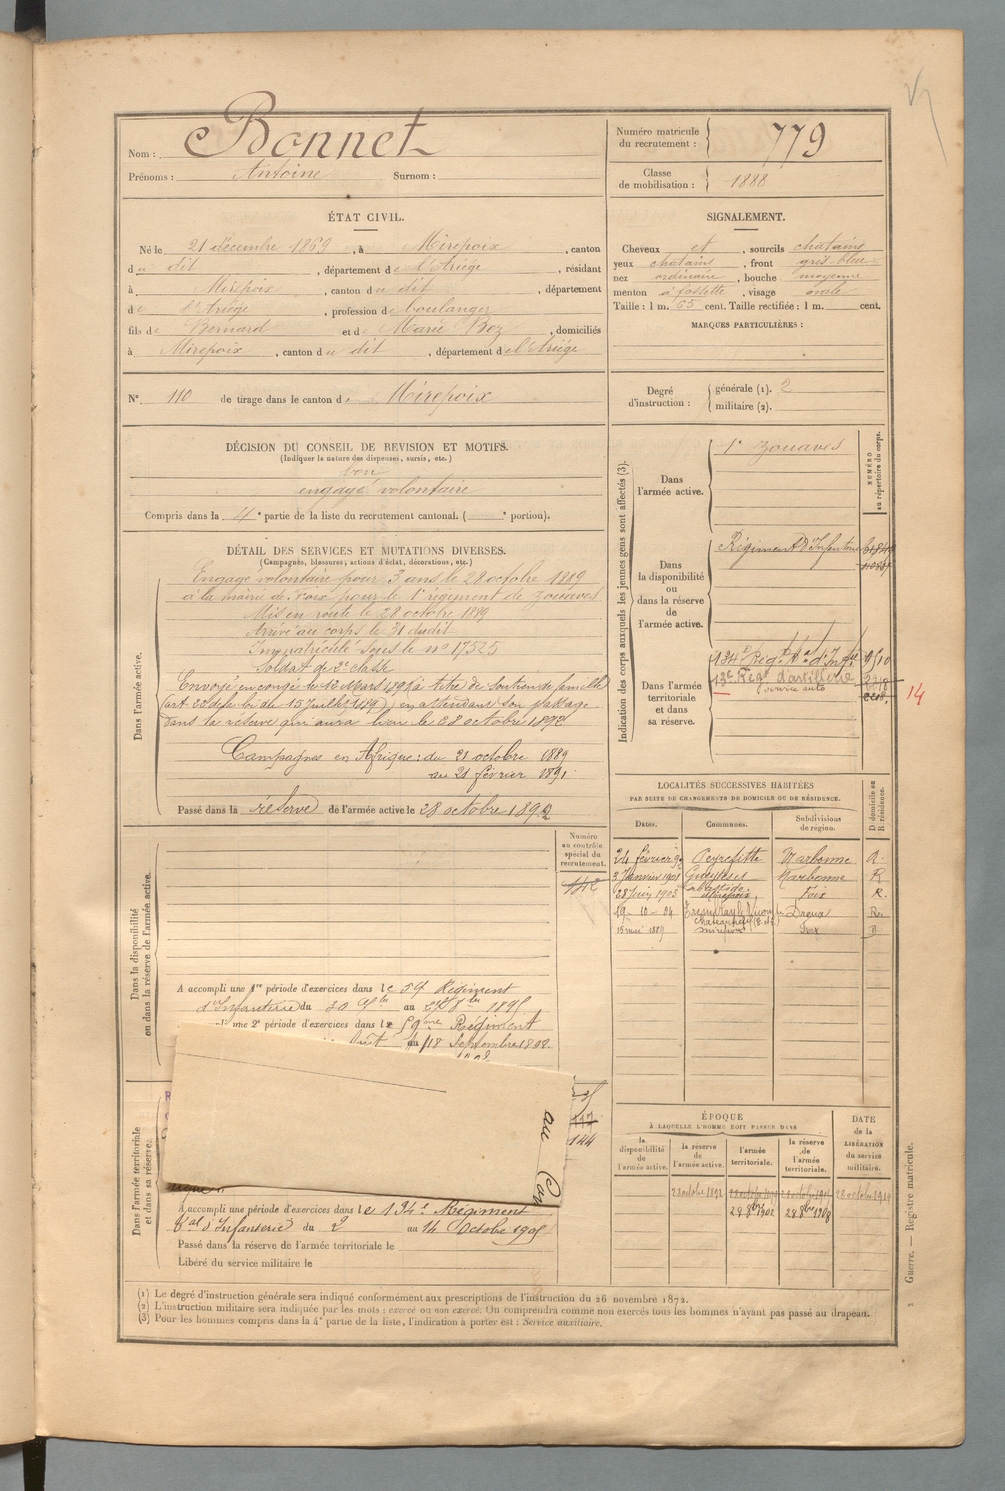 Bonnet
Nom :
Prénoms : Antoine Surnom :
Numéro matricule du recrutement : 779
Classe de mobilisation : 1888
ÉTAT CIVIL.
Né le 21 décembre 1869, à Mirepoix, canton
du dit, département de l'Ariége, résidant
à Mirepoix, canton du dit, département
de l'Ariége, profession de boulanger
fils de Bernard et de Marie Boz, domiciliés
à Mirepoix, canton du dit, département de l'Ariége
SIGNALEMENT.
Cheveux et, sourcils chatains
yeux chatains, front gris bleu
nez ordinaire, bouche moyenne
menton à fossette, visage ovale
Taille : 1 m. 65 cent. Taille rectifiée : 1 m. cent.
MARQUES PARTICULIÈRES :
N° 110 de tirage dans le canton de Mirepoix
Degré d'instruction : générale (1). 2
militaire (2).
DÉCISION DU CONSEIL DE REVISION ET MOTIFS.
(Indiquer la nature des dispenses, sursis, etc.)
bon
engagé volontaire
Compris dans la 4e partie de la liste du recrutement cantonal. ( e portion).
DÉTAIL DES SERVICES ET MUTATIONS DIVERSES.
(Campagnes, blessures, actions d'éclat, décorations, etc.)
Dans l'armée active.
Engagé volontaire pour 3 ans le 28 octobre 1889
à la mairie de Foix pour le 1er régiment de zouaves
Mis en route le 28 octobre 1889
Arrivé au corps le 31 dudit
Immatriculé sous le n° 17525
Soldat de 2e classe
Envoyé en congé le 12 Mars 1891 à titre de Soutien de famille
(art 22 de la loi du 15 juillet 1889) en attendant son passage
dans la réserve qui aura lieu le 28 octobre 1892
Campagnes en Afrique : du 31 octobre 1889
au 21 février 1891.
Passé dans la réserve de l'armée active le 28 octobre 1892
Indication des corps auxquels les jeunes gens sont affectés (3).
NUMÉRO au répertoire du corps.
Dans l'armée active.
1er Zouaves
Dans la disponibilité ou dans la réserve de l'armée active.
Régiment d'Infanterie
Dans l'armée territoriale et dans sa réserve.
134e Régt tal d'Infie
13e Régt d'artillerie
ouvrier auto
2218
14
LOCALITÉS SUCCESSIVES HABITÉES
PAR SUITE DE CHANGEMENTS DE DOMICILE OU DE RÉSIDENCE.
Dates. Communes. Subdivisions de région. D domicile ou R résidence.
24 février 92 Peyrefitte Narbonne R.
3 Janvier 1901 Narbonne R
28 Juin 1903 La Bastide Foix R.
19-10-04 Dreux
Numéro au contrôle spécial du recrutement.
142
Dans la disponibilité ou dans la réserve de l'armée active.
A accompli une 1re période d'exercices dans le 59e Régiment
d'Infanterie du 30
une 2e période d'exercices dans le 59ème Régiment
au 18 Septembre 1898.
144
au
Dans l'armée territoriale et dans sa réserve.
A accompli une période d'exercices dans le 134e Régiment
tal d'Infanterie du 2 au 14 Octobre 1905
Passé dans la réserve de l'armée territoriale le
Libéré du service militaire le
ÉPOQUE
À LAQUELLE L'HOMME DOIT PASSER DANS
DATE de la LIBÉRATION du service militaire.
la disponibilité de l'armée active. la réserve de l'armée active. l'armée territoriale. la réserve de l'armée territoriale.
28 octobre 1892 28 octobre 1914
28 8bre 1902 28 8bre 1908
(1) Le degré d'instruction générale sera indiqué conformément aux prescriptions de l'instruction du 26 novembre 1872.
(2) L'instruction militaire sera indiquée par les mots : exercé ou non exercé. On comprendra comme non exercés tous les hommes n'ayant pas passé au drapeau.
(3) Pour les hommes compris dans la 4e partie de la liste, l'indication à porter est : Service auxiliaire.
Guerre. — Registre matricule.